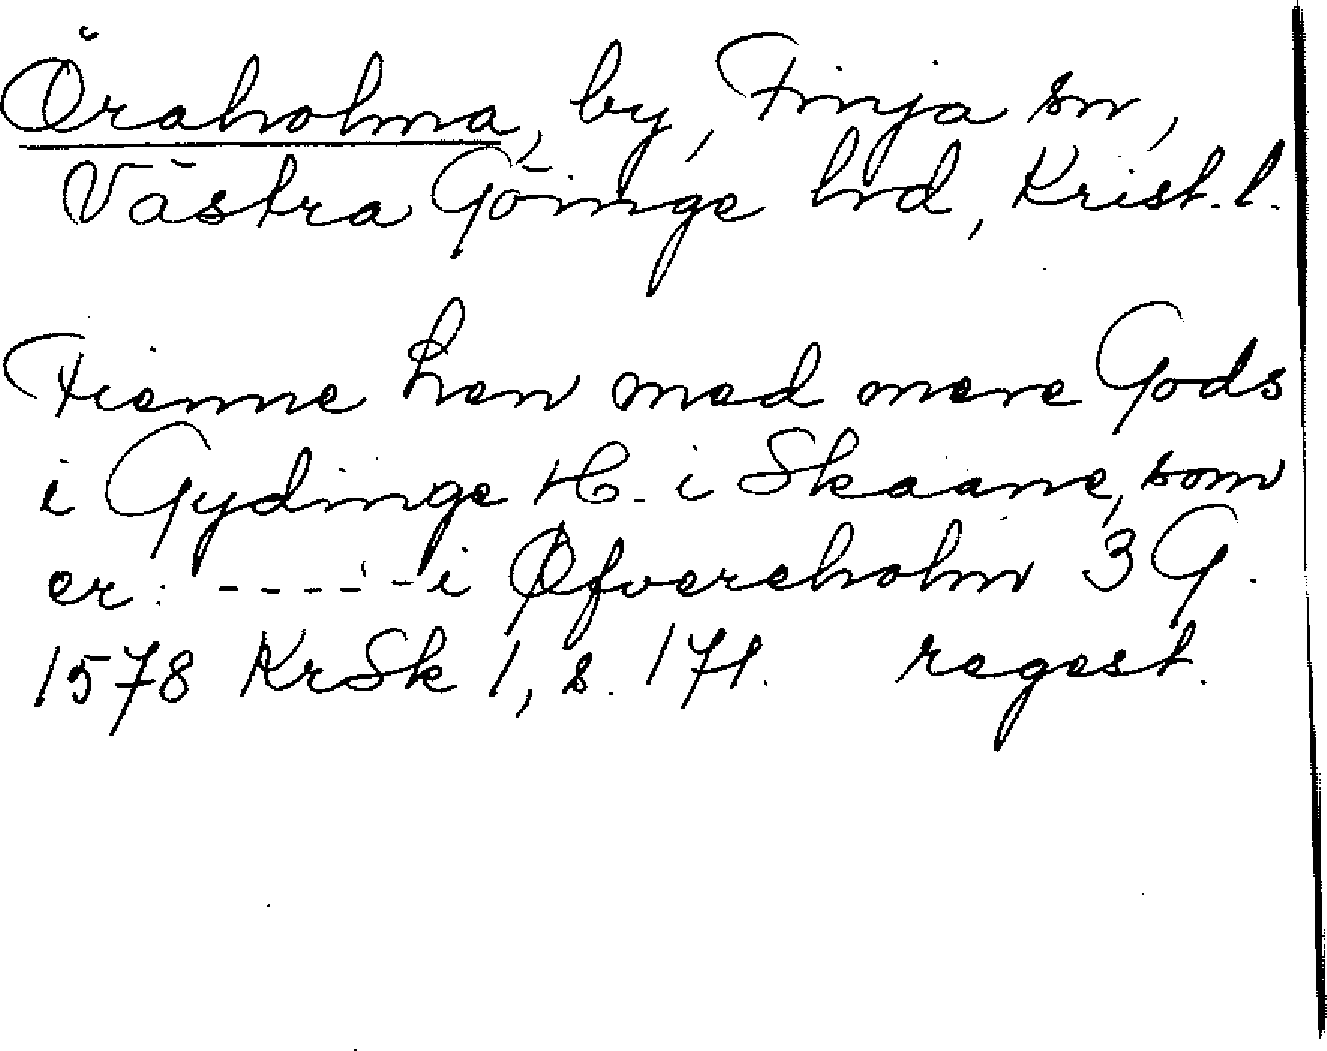 Öraholma, by, Finja sn,
Västra Göinge hd, Krist. l.
Fienne hen med mere Gods
i Gydinge H. i Skaane, som
er: ------i Øfvereholm 3 G.
1578 KrSk 1, s. 171. regest.